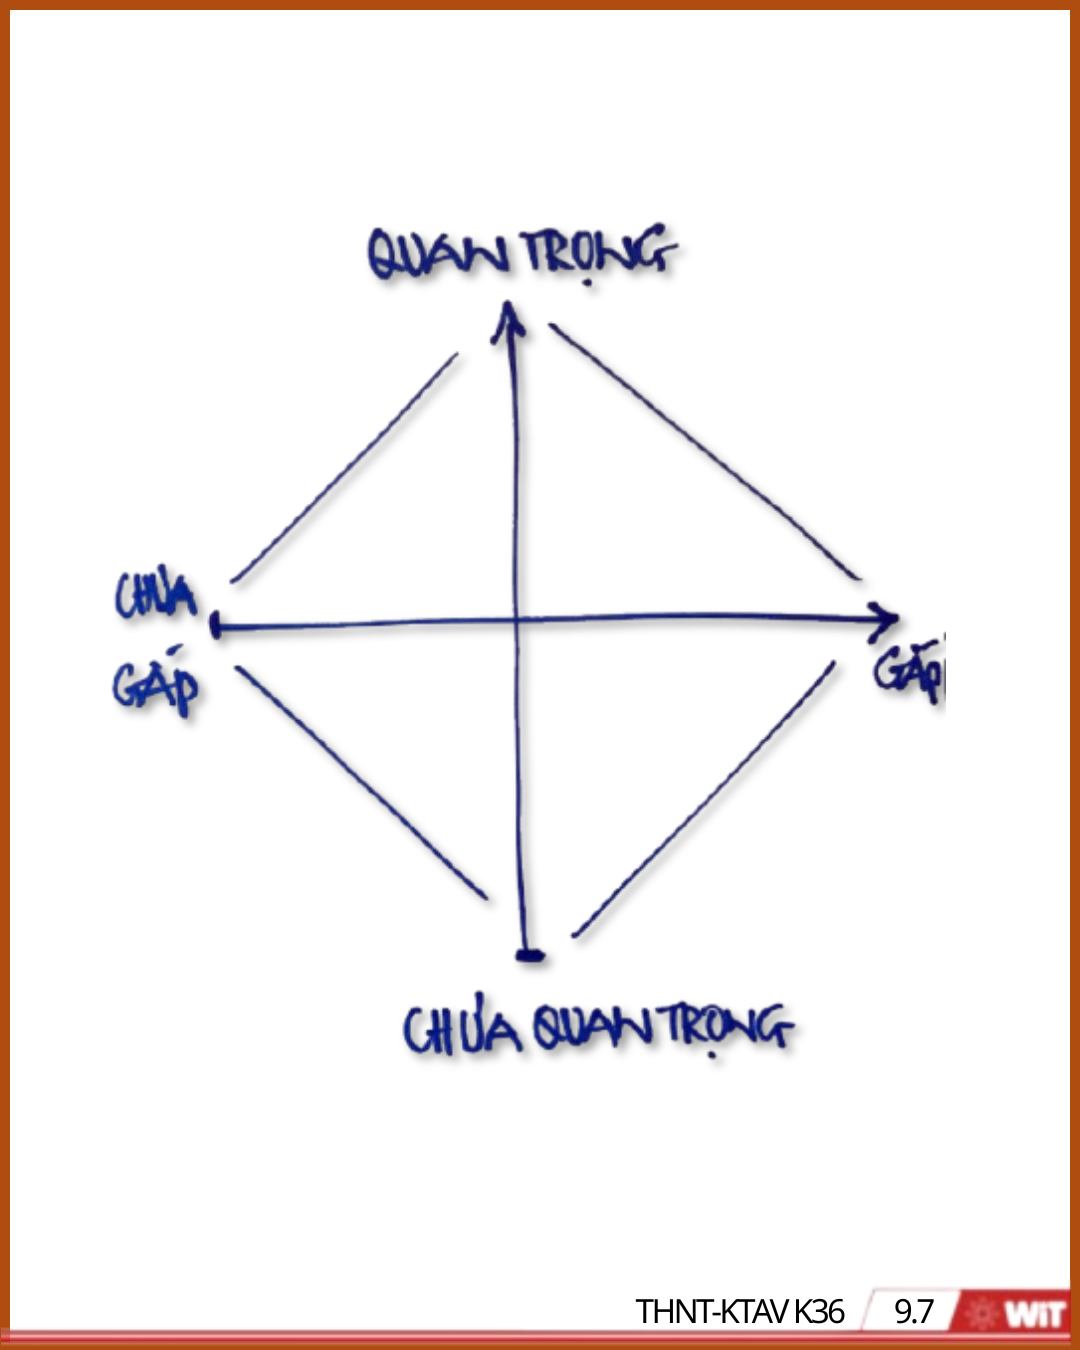 QUAN TRỌNG
CHƯA
GẤP
GẤP
CHƯA QUAN TRỌNG
THNT-KTAV K36
9.7
WiT